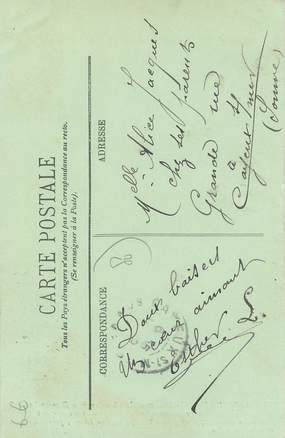 CARTE POSTALE
Tous les Pays étrangers n'acceptent pas la Correspondance au recto.
(Se renseigner à la Poste).
CORRESPONDANCE
Doux baisers
Un cœur aimant
ADRESSE
Melle Alice Jacques
Chez ses parents
Grande rue
à
Cayeux s/ mer
(Somme)